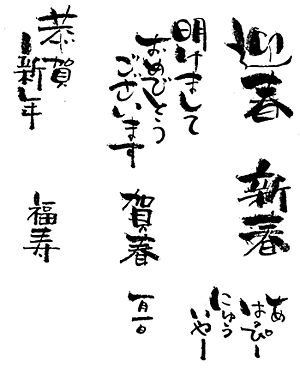 迎春
新春
あ
はっぴー
にゅう
いやー
明けまして
おめでとう
ございます
賀春
一月一日
恭賀
新年
福寿